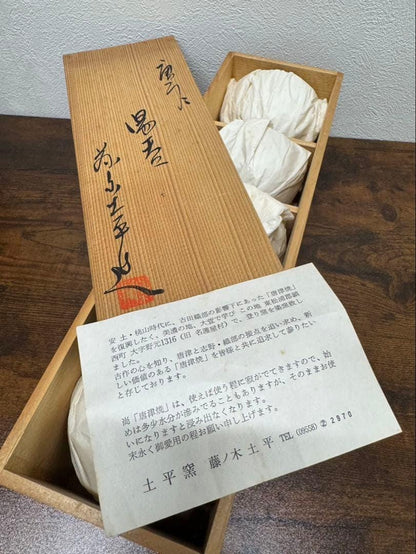 唐津
湯呑
藤ノ木土平造
安土・桃山時代に、古田織部の影響下にあった「唐津焼」
を復興したく、美濃の地、大萱で学び この地 東松浦郡鎮
西町 大字野元1316（旧 名護屋村）で、登り窯を築窯致し
ました。
古作の心を知り、唐津と志野・織部の接点を追い求め、新
しい価値のある「唐津焼」を皆様と共に追求して参りたい
と存じております。
尚「唐津焼」は、使えば使う程に寂がでてきますので、始
めは多少水分が滲みでることもありますが、そのままお使
いになりますと浸み出なくなります。
末永く御愛用の程お願い申し上げます。
土平窯 藤ノ木土平 TEL (09558) ② 2970